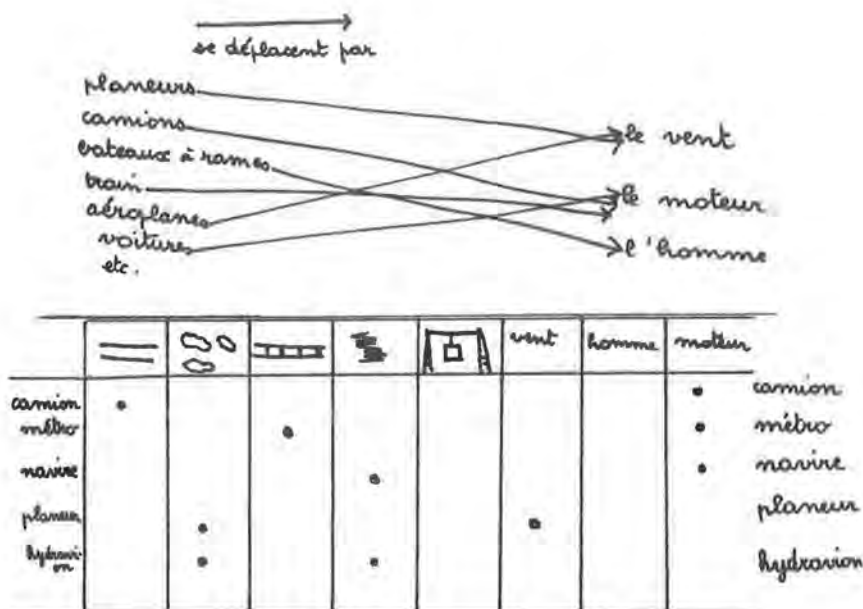 se déplacent par
planeurs
camions
bateaux à rames
train
aéroplanes
voiture
etc.
le vent
le moteur
l'homme
vent homme moteur
camion camion
métro métro
navire navire
planeur planeur
hydravi-
on hydravion